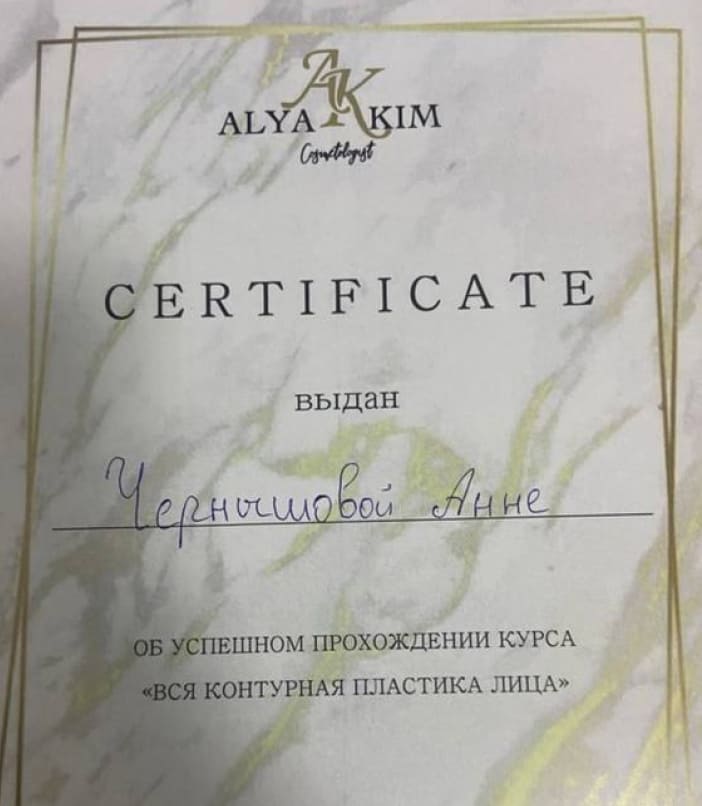 AK
ALYA KIM
Cosmetologist
CERTIFICATE
выдан
Чернышовой Анне
ОБ УСПЕШНОМ ПРОХОЖДЕНИИ КУРСА
«ВСЯ КОНТУРНАЯ ПЛАСТИКА ЛИЦА»